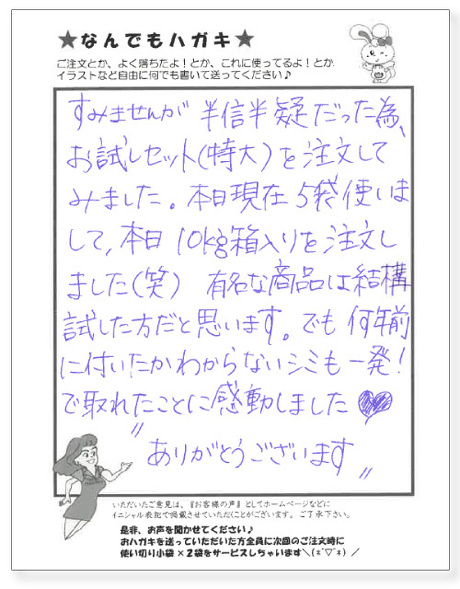 ★なんでもハガキ★
ご注文とか、よく落ちたよ！とか、これに使ってるよ！とか
イラストなど自由に何でも書いて送ってください♪
すみませんが 半信半疑だった為、
お試しセット(特大)を注文して
みました。本日現在 5袋使いま
して、本日 10kg箱入りを注文し
ました(笑) 有名な商品は結構
試した方だと思います。でも 何年前
に付いたかわからないシミも一発！
で取れたことに感動しました♥
〃ありがとうございます〃
いただいたご意見は、『お客様の声』としてホームページなどに
イニシャル表記で掲載させていただくことがございます。ご了承下さい。
是非、お声を聞かせてください♪
おハガキを送っていただいた方全員に次回のご注文時に
使い切り小袋×2袋をサービスしちゃいます＼(*˘▽˘*)／